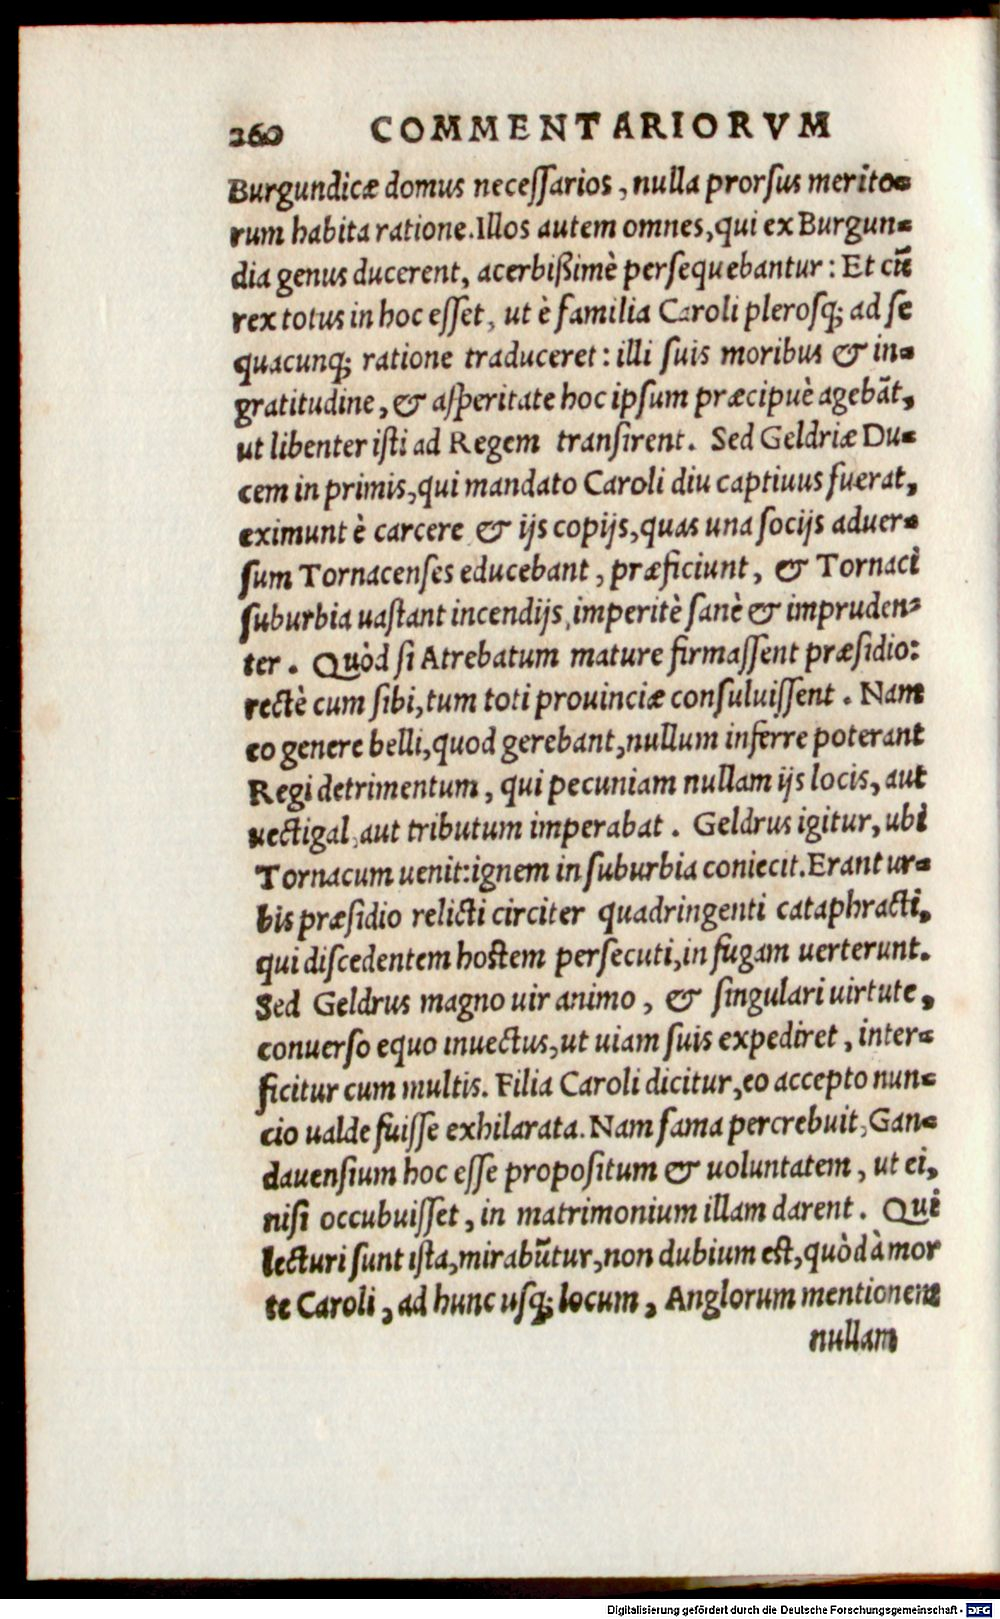 260 COMMENTARIORVM
Burgundicæ domus neceſſarios, nulla prorſus merito-
rum habita ratione. Illos autem omnes, qui ex Burgun-
dia genus ducerent, acerbißimè perſequebantur: Et cū
rex totus in hoc eſſet, ut è familia Caroli pleroſq; ad ſe
quacunq; ratione traduceret: illi ſuis moribus & in-
gratitudine, & aſperitate hoc ipſum præcipuè agebāt,
ut libenter iſti ad Regem tranſirent. Sed Geldriæ Du-
cem in primis, qui mandato Caroli diu captiuus fuerat,
eximunt è carcere & ijs copijs, quas una ſocijs aduer-
ſum Tornacenſes educebant, præficiunt, & Tornaci
ſuburbia uaſtant incendijs, imperitè ſanè & impruden-
ter. Quòd ſi Atrebatum mature firmaſſent præſidio:
rectè cum ſibi, tum toti prouinciæ conſuluiſſent. Nam
eo genere belli, quod gerebant, nullum inferre poterant
Regi detrimentum, qui pecuniam nullam ijs locis, aut
uectigal, aut tributum imperabat. Geldrus igitur, ubi
Tornacum uenit: ignem in ſuburbia coniecit. Erant ur-
bis præſidio relicti circiter quadringenti cataphracti,
qui diſcedentem hoſtem perſecuti, in fugam uerterunt.
Sed Geldrus magno uir animo, & ſingulari uirtute,
conuerſo equo inuectus, ut uiam ſuis expediret, inter-
ficitur cum multis. Filia Caroli dicitur, eo accepto nun-
cio ualde fuiſſe exhilarata. Nam fama percrebuit, Gan-
dauenſium hoc eſſe propoſitum & uoluntatem, ut ei,
niſi occubuiſſet, in matrimonium illam darent. Qui
lecturi ſunt iſta, mirabūtur, non dubium eſt, quòd à mor
te Caroli, ad hunc uſq; locum, Anglorum mentionem
nullam
Digitalisierung gefördert durch die Deutsche Forschungsgemeinschaft - DFG